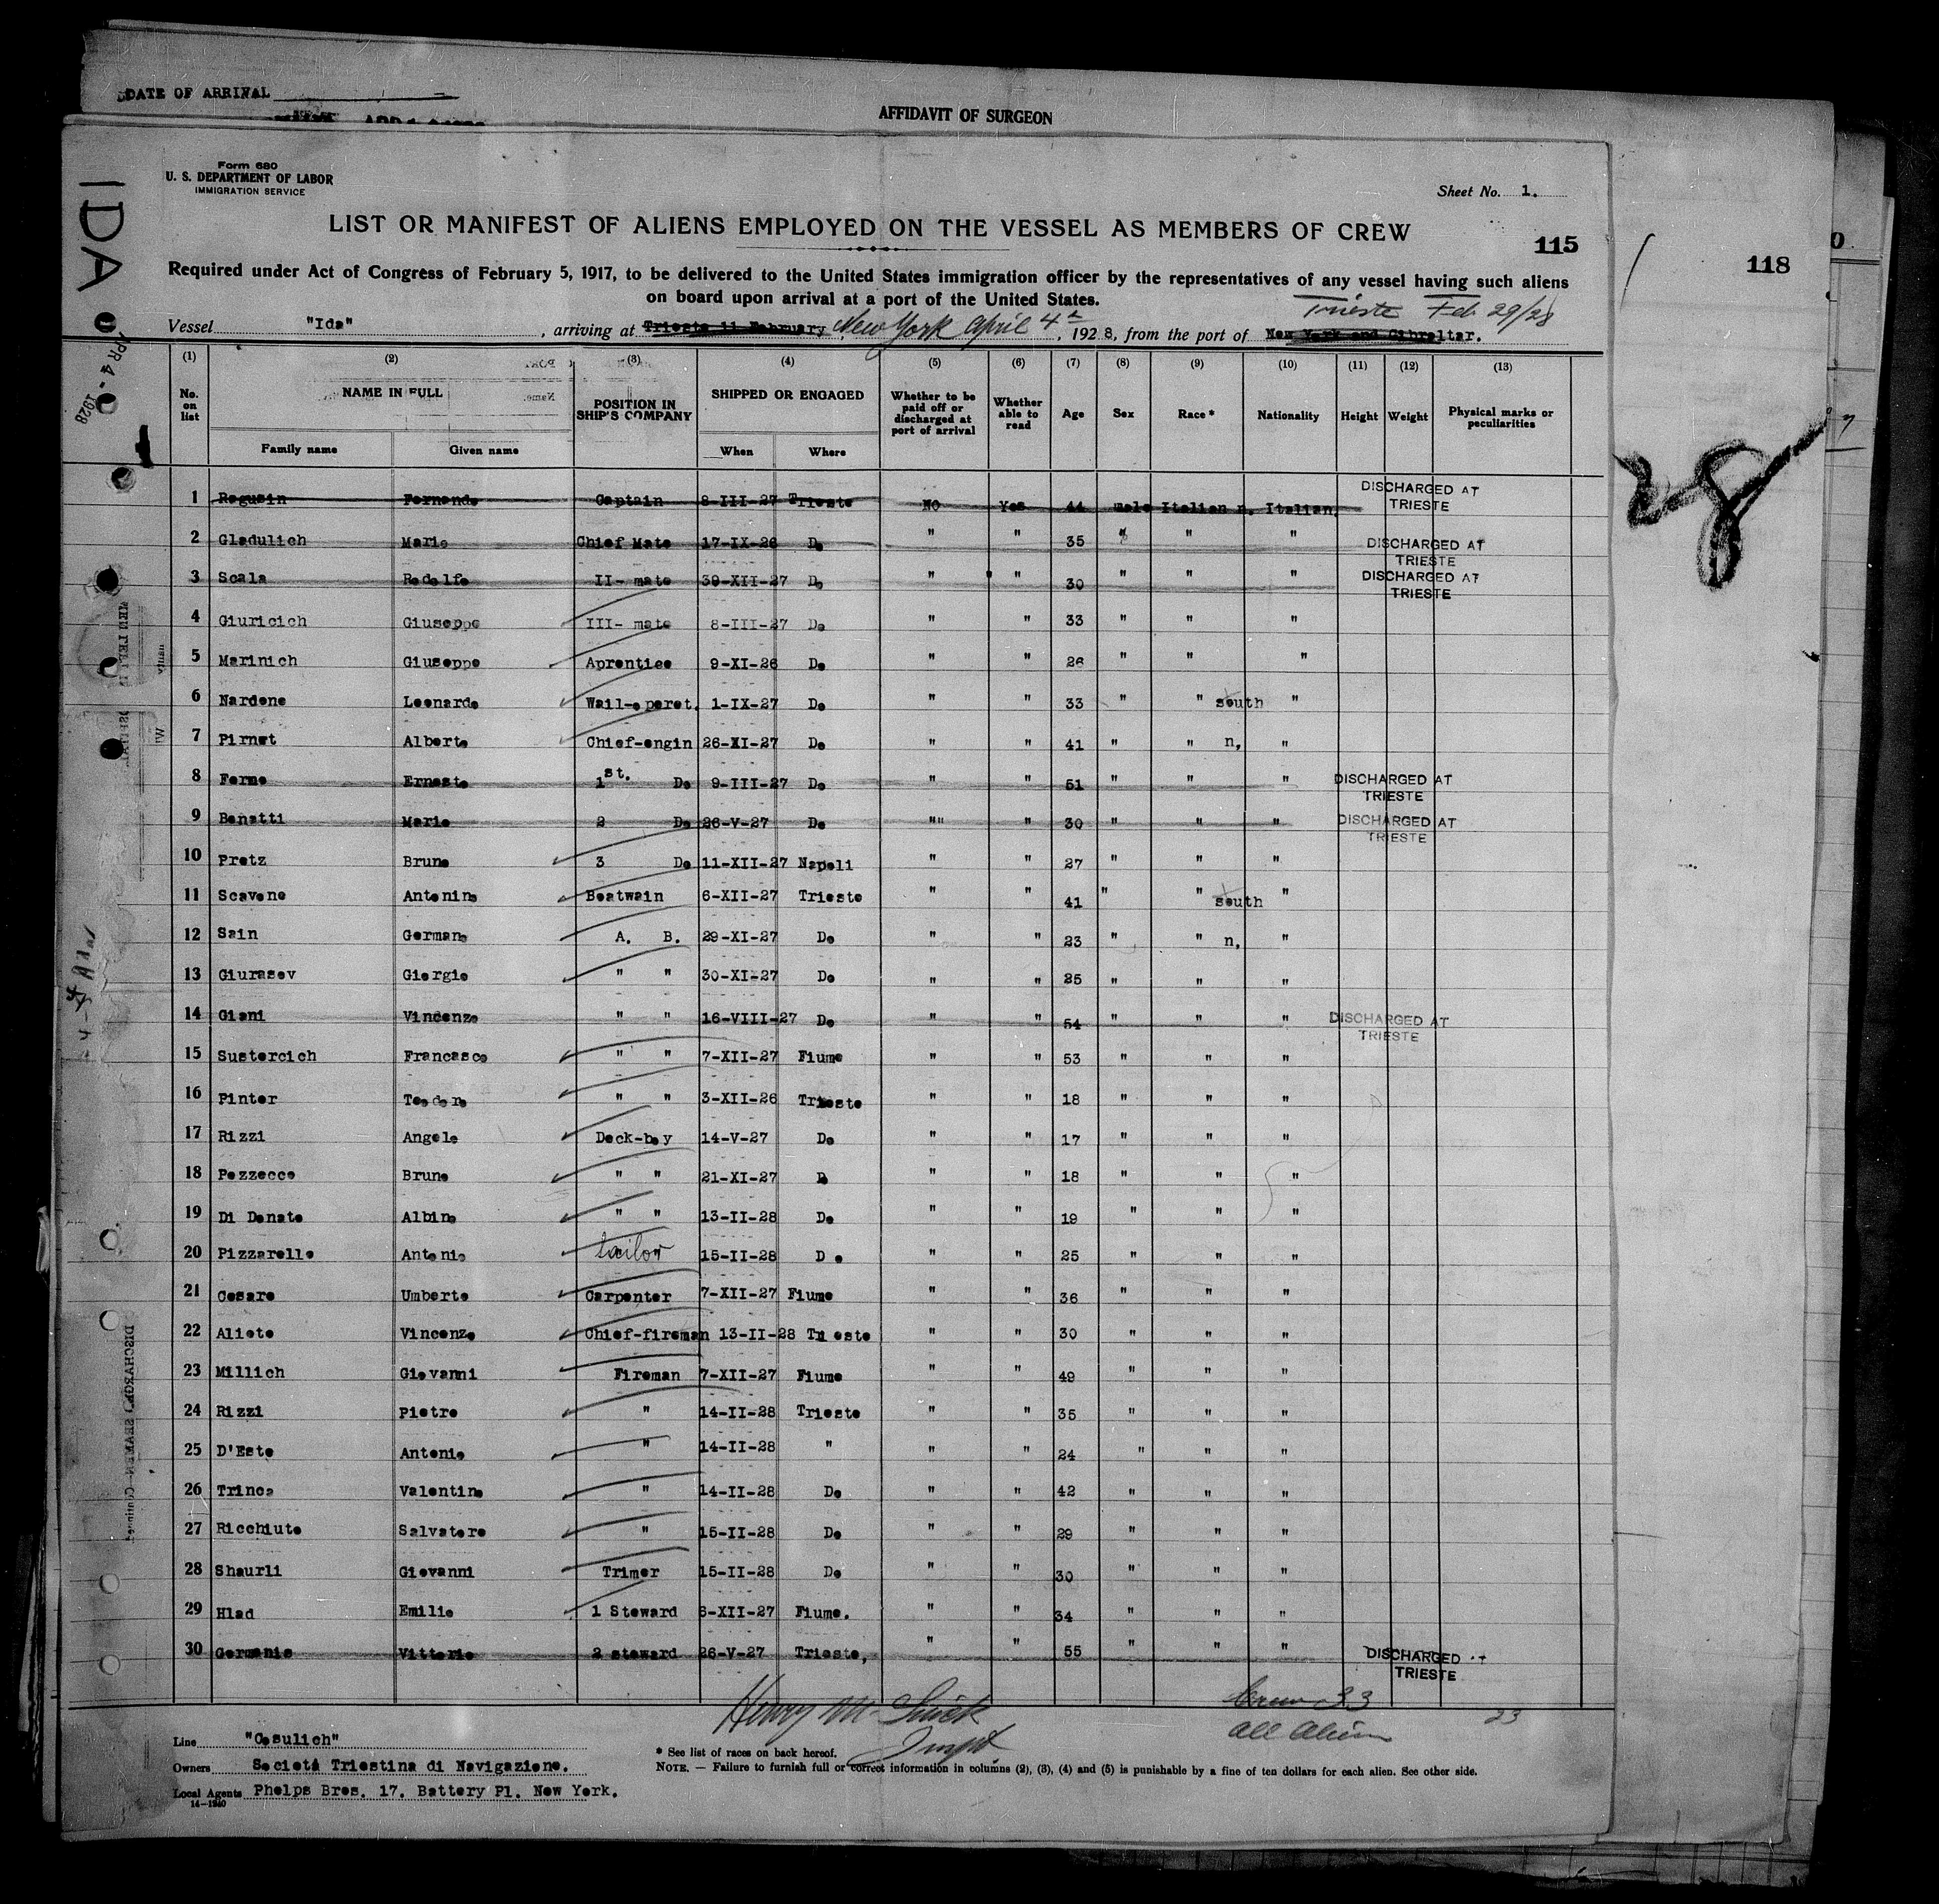 DATE OF ARRIVAL
AFFIDAVIT OF SURGEON
IDA
APR 4 - 1928
Form 680
U. S. DEPARTMENT OF LABOR
IMMIGRATION SERVICE
Sheet No. 1.
LIST OR MANIFEST OF ALIENS EMPLOYED ON THE VESSEL AS MEMBERS OF CREW
115
118
Required under Act of Congress of February 5, 1917, to be delivered to the United States immigration officer by the representatives of any vessel having such aliens
on board upon arrival at a port of the United States.
Trieste Feb 29/28
Vessel "Ida", arriving at Trieste 11 February, New York April 4th, 1928, from the port of New York and Gibreltar.
(1) (2) (3) (4) (5) (6) (7) (8) (9) (10) (11) (12) (13)
No. on list NAME IN FULL POSITION IN SHIP'S COMPANY SHIPPED OR ENGAGED Whether to be paid off or discharged at port of arrival Whether able to read Age Sex Race * Nationality Height Weight Physical marks or peculiarities
Family name Given name When Where
1 Ragusin Fernando Captain 8-III-27 Trieste NO Yes 44 male Italian n. Italian. DISCHARGED AT TRIESTE
2 Gladulich Mario Chief Mate 17-IX-26 Do " " 35 " " " DISCHARGED AT TRIESTE
3 Scala Rodolfo II- mate 30-XII-27 Do " " 30 " " " DISCHARGED AT TRIESTE
4 Giuricich Giuseppe III- mate 8-III-27 Do " " 33 " " "
5 Marinich Giuseppe Aprentice 9-XI-26 Do " " 26 " " "
6 Nardone Leonardo Wail-operet. 1-IX-27 Do " " 33 " " south "
7 Pirnat Alberto Chief-engin 26-XI-27 Do " " 41 " " n, "
8 Ferno Ernesto 1st. Do 9-III-27 Do " " 51 " " " DISCHARGED AT TRIESTE
9 Benatti Mario 2 Do 26-V-27 Do "" " 30 " " " DISCHARGED AT TRIESTE
10 Pretz Bruno 3 Do 11-XII-27 Napoli " " 27 " " "
11 Scavone Antonino Boatwain 6-XII-27 Trieste " " 41 " " south "
12 Sain Germano A. B. 29-XI-27 Do " " 23 " " n, "
13 Giurasev Giorgio " " 30-XI-27 Do " " 25 " " "
14 Giani Vincenzo " " 16-VIII-27 Do " " 54 " " " DISCHARGED AT TRIESTE
15 Sustercich Francasco " " 7-XII-27 Fiume " " 53 " " "
16 Pinter Teodoro " " 3-XII-26 Trieste " " 18 " " "
17 Rizzi Angelo Deck-boy 14-V-27 Do " " 17 " " "
18 Pozzecco Bruno " " 21-XI-27 D " " 18 " " "
19 Di Donato Albino " " 13-II-28 Do " " 19 " " "
20 Pizzarello Antonio sailor 15-II-28 D o " " 25 " " "
21 Cesare Umberto Carpenter 7-XII-27 Fiume " " 36 " " "
22 Alioto Vincenzo Chief-fireman 13-II-28 Trieste " " 30 " " "
23 Millich Giovanni Fireman 7-XII-27 Fiume " " 49 " " "
24 Rizzi Pietro " 14-II-28 Trieste " " 35 " " "
25 D'Este Antonio " 14-II-28 " " " 24 " " "
26 Trinca Valentino " 14-II-28 Do " " 42 " " "
27 Ricchiuto Salvatore " 15-II-28 Do " " 29 " " "
28 Shaurli Giovanni Trimer 15-II-28 Do " " 30 " " "
29 Hlad Emilio 1 Steward 6-XII-27 Fiume. " " 34 " " "
30 Germanis Vittorio 2 steward 26-V-27 Trieste, " " 55 " " " DISCHARGED AT TRIESTE
Crew 33
all Aliens
23
Line "Cosulich"
Owners Societá Triestina di Navigazione.
Local Agents Phelps Bros. 17. Battery Pl. New York.
14-1240
* See list of races on back hereof.
NOTE. — Failure to furnish full or correct information in columns (2), (3), (4) and (5) is punishable by a fine of ten dollars for each alien. See other side.